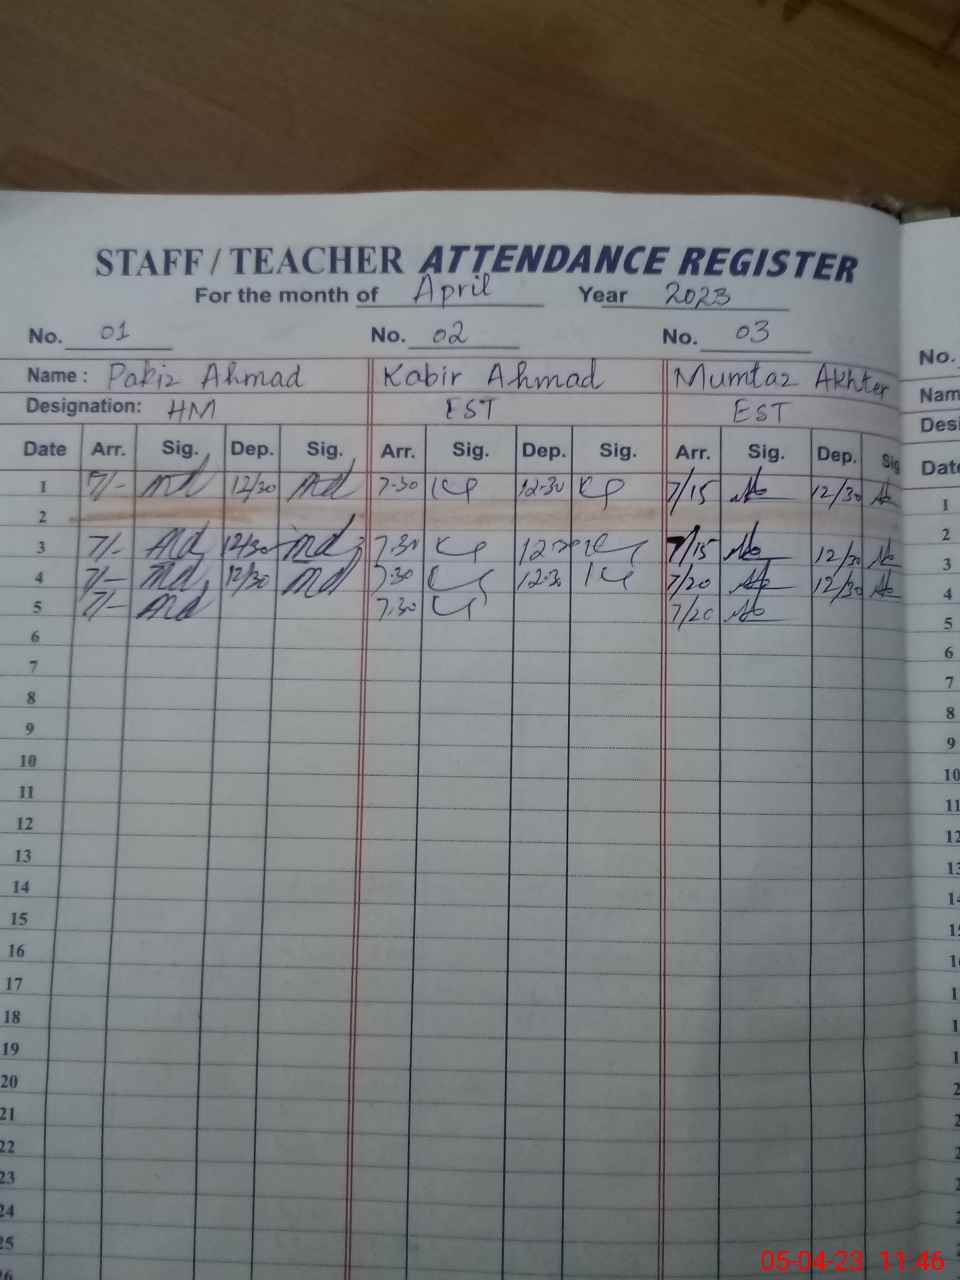 STAFF / TEACHER ATTENDANCE REGISTER
For the month of April Year 2023
No. 01 No. 02 No. 03 No.
Name : Pakiz Ahmad Kabir Ahmad Mumtaz Akhter Nam
Designation: HM EST EST Desi
Date Arr. Sig. Dep. Sig. Arr. Sig. Dep. Sig. Arr. Sig. Dep. Sig Date
1 7/- 12/30 7-30 12-30 7/15 12/30 1
2 2
3 7/- 12/30 7.30 7/15 12/30 3
4 7/- 12/30 7.30 12.30 7/20 12/30 4
5 7/- 7.30 7/20 5
6 6
7 7
8 8
9 9
10 10
11 11
12 12
13 13
14 14
15
16
17
18
19
20
21
22
23
24
25
26
05-04-23 11:46